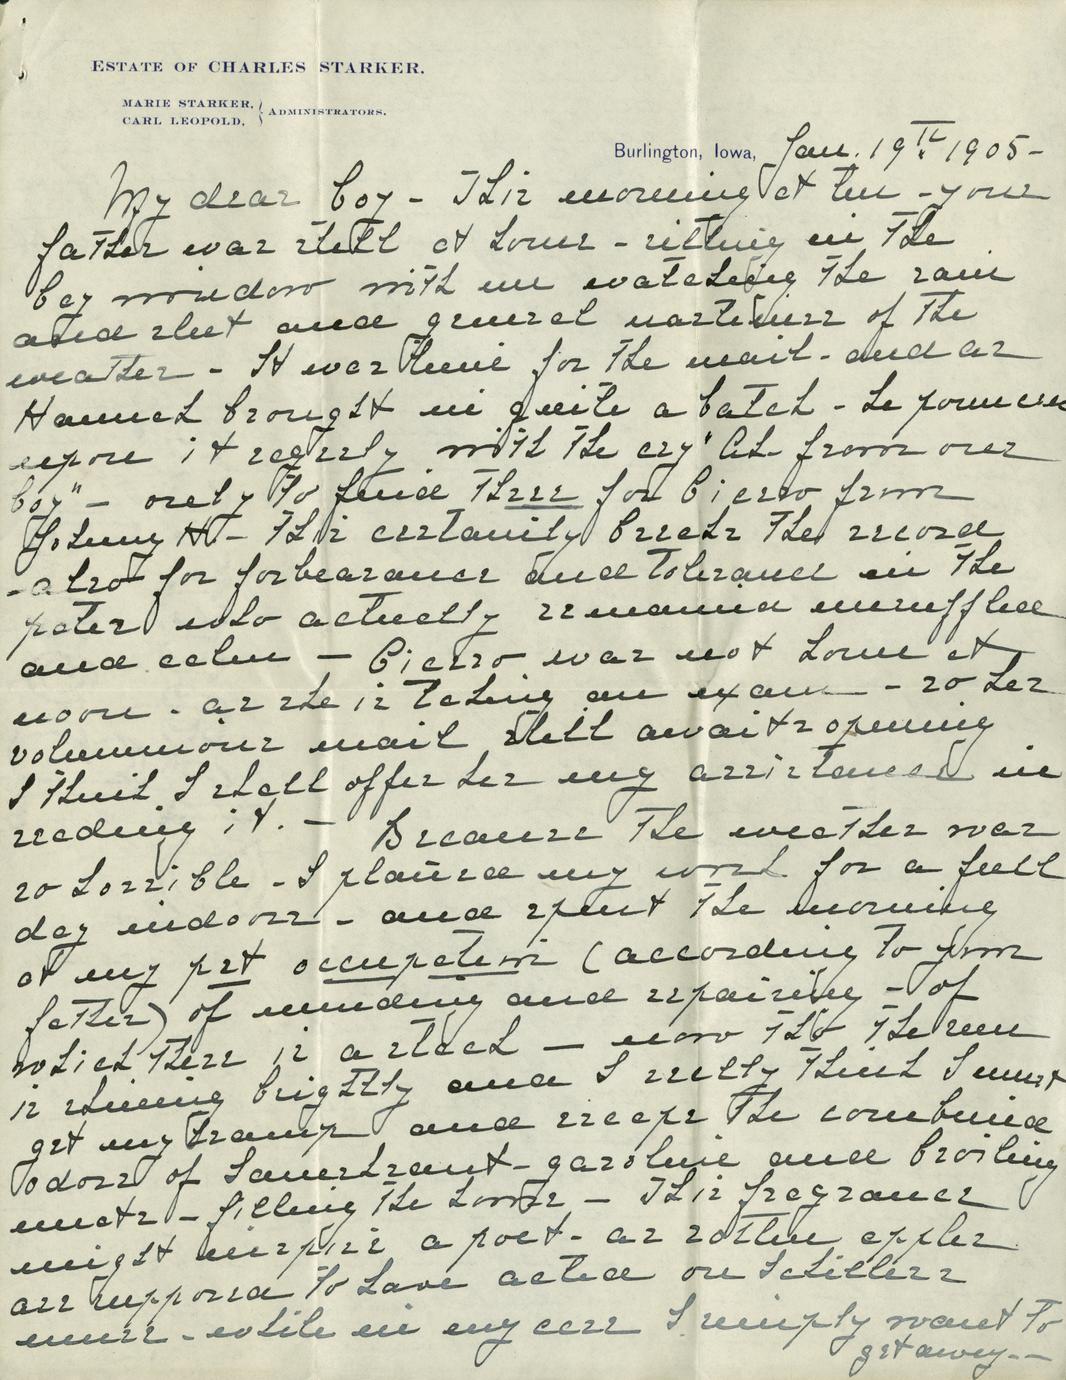 ESTATE OF CHARLES STARKER.
MARIE STARKER,
CARL LEOPOLD,
ADMINISTRATORS.
Burlington, Iowa, Jan. 19th 1905-
My dear boy - This morning at ten - your
father was still at home - sitting in the
bay window with me watching the rain
and sleet and general nastiness of the
weather - It was time for the mail - and as
Hannah brought in quite a batch - he pounced
upon it eagerly with the cry "Ah from our
boy" - only to find three for Cierro from
Johnny H - This certainly breaks the record
- also for forbearance and tolerance in the
pater who actually remained unruffled
and calm - Cierro was not home at
noon - as she is taking an exam - so her
voluminous mail still awaits opening
I think I shall offer her my assistance in
reading it. - Because the weather was
so horrible - I planned my work for a full
day indoors - and spent the morning
at my pet occupation (according to your
father) of mending and repairing - of
which there is a stack - now tho the sun
is shining brightly and I really think I must
get my tramp and escape the combined
odors of Sauerkraut - gasoline and broiling
meats - filling the house - This fragrance
might inspire a poet - as rotten apples
are supposed to have acted on Schillers
muse - while in my case I simply want to
get away --